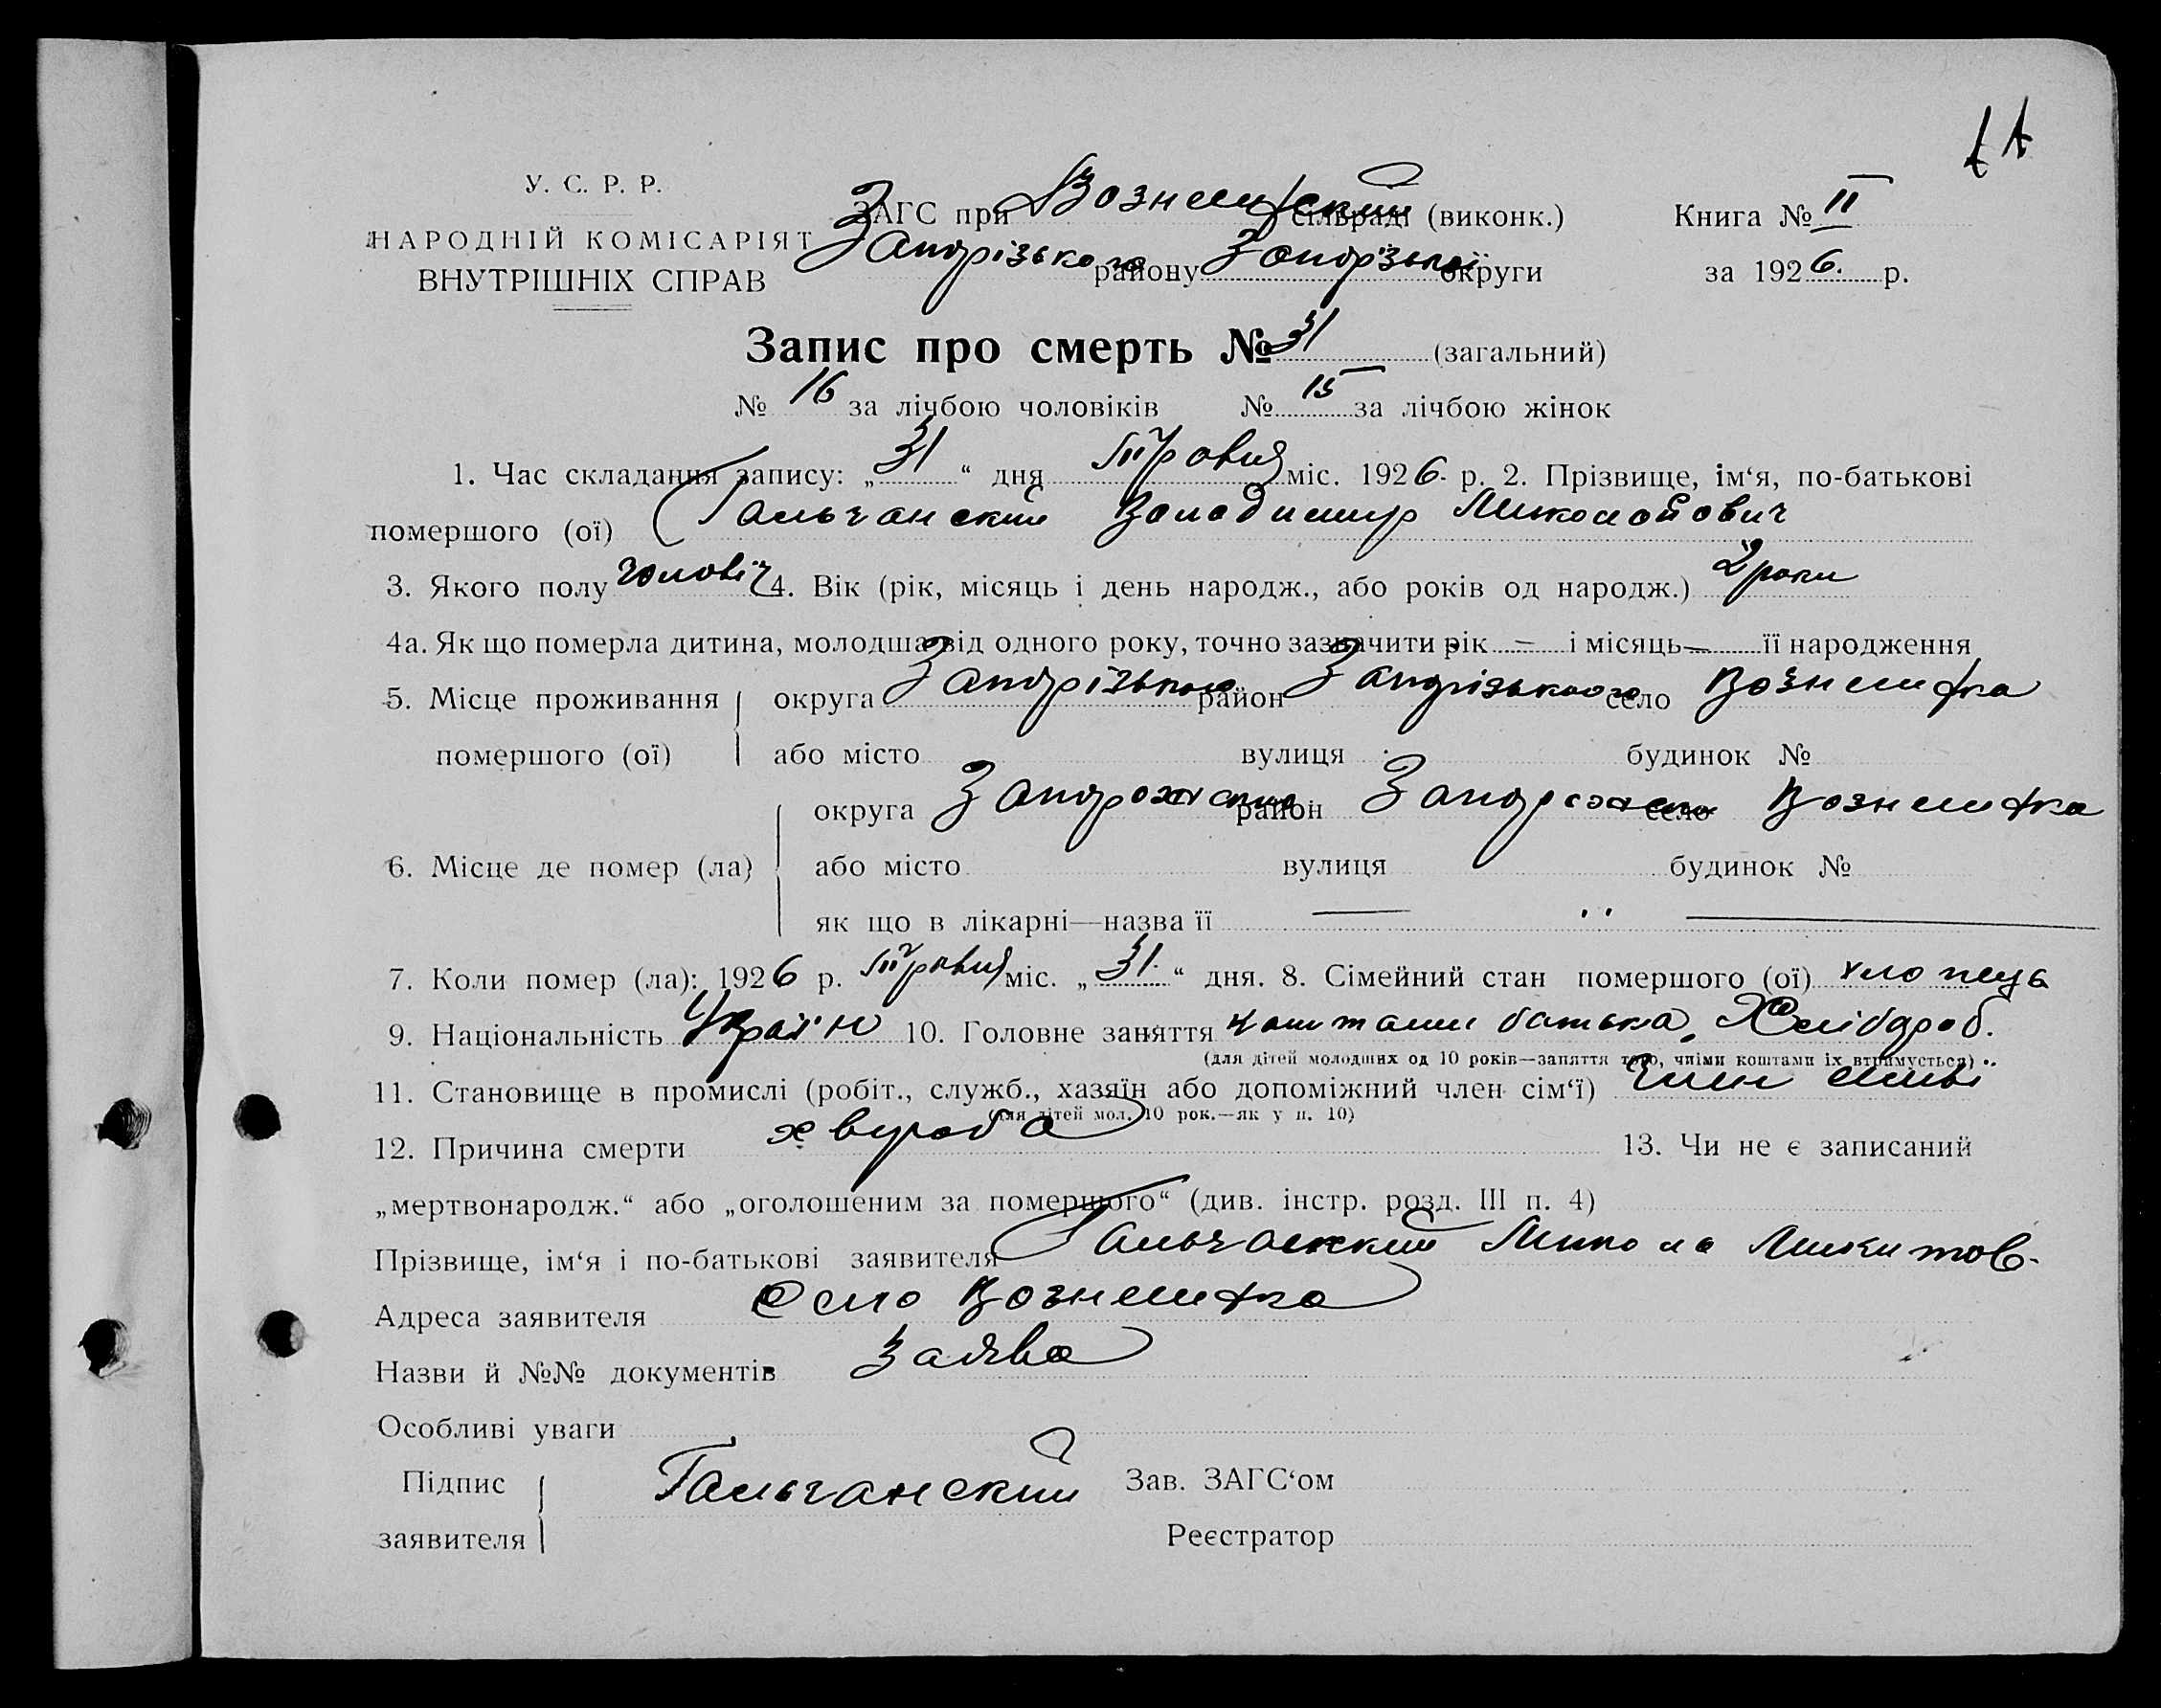 У. С. Р. Р.
НАРОДНІЙ КОМІСАРІЯТ
ВНУТРІШНІХ СПРАВ
ЗАГС при Вознесенський сільраді (виконк.)
Запорізького району Запорізької округи
Книга № II
за 1926. р.
Запис про смерть № 31 (загальний)
№ 16 за лічбою чоловіків № 15 за лічбою жінок
1. Час складання запису: „31“ дня Травня міс. 1926. р. 2. Прізвище, ім‘я, по-батькові
помершого (ої) Гальчанский Володимир Миколайович
3. Якого полу чоловіч 4. Вік (рік, місяць і день народж., або років од народж.) 2 роки
4а. Як що померла дитина, молодша від одного року, точно зазначити рік — і місяць — її народження
5. Місце проживання помершого (ої) округа Запорізького район Запорізького село Вознесенка
або місто вулиця будинок №
6. Місце де помер (ла) округа район село Вознесенка
або місто вулиця будинок №
як що в лікарні—назва її —
7. Коли помер (ла): 1926 р. Травня міс. „31.“ дня. 8. Сімейний стан помершого (ої) хлопець
9. Національність Україн 10. Головне заняття коштами батька, Хлібороб.
(для дітей молодших од 10 років—заняття того, чиїми коштами їх втримується)
11. Становище в промислі (робіт., служб., хазяїн або допоміжний член сім‘ї) Член сімьї
(для дітей мол. 10 рок.—як у п. 10)
12. Причина смерти хвороба 13. Чи не є записаний
„мертвонародж.“ або „оголошеним за помершого“ (див. інстр. розд. III п. 4)
Прізвище, ім‘я і по-батькові заявителя Гальчанский Микола Микитов.
Адреса заявителя село Вознесенка
Назви й №№ документів Заява
Особливі уваги
Підпис заявителя Гальчанский Зав. ЗАГС‘ом
Реєстратор